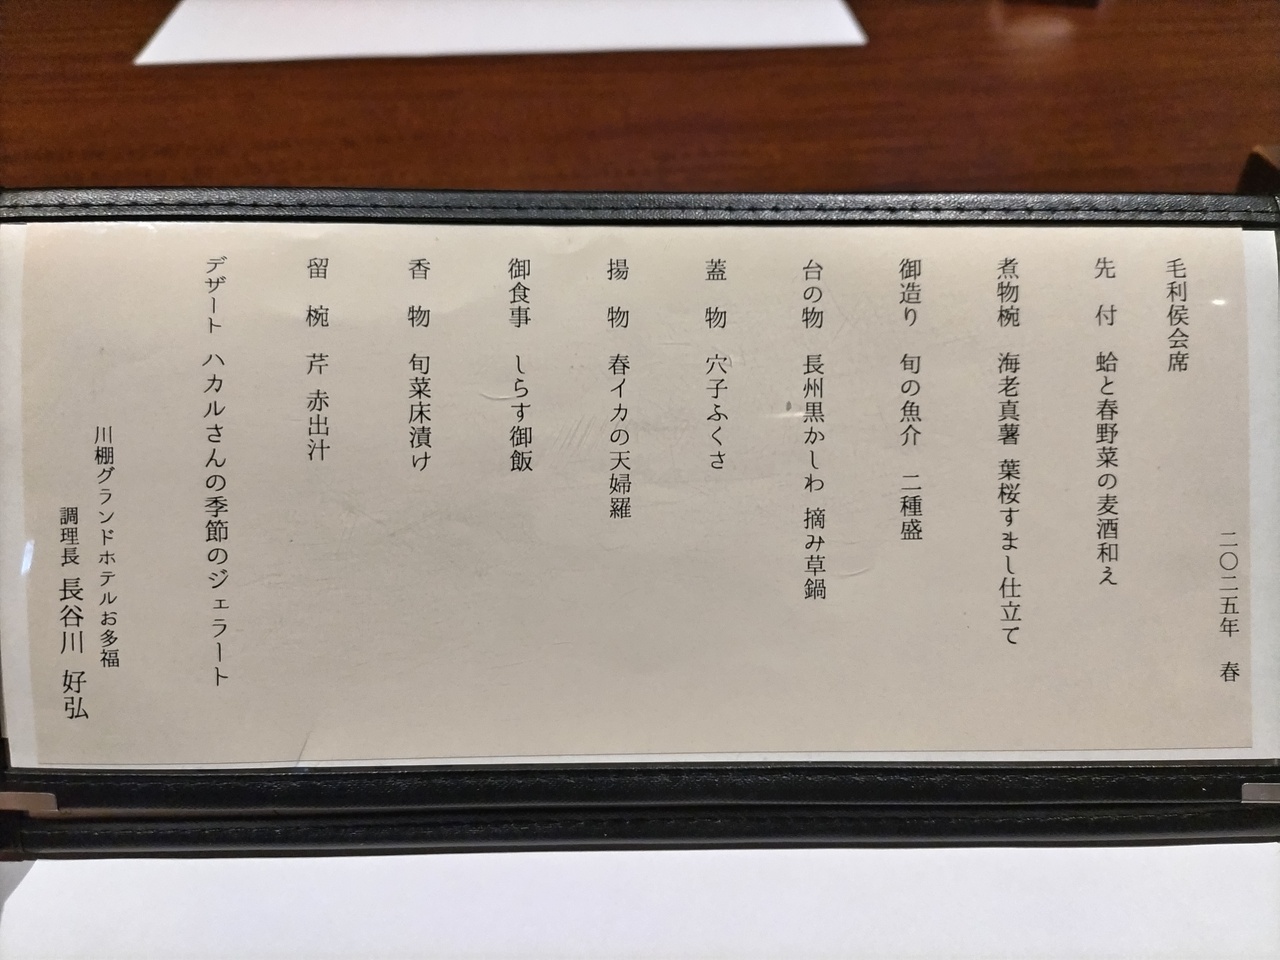 二〇二五年　春
毛利侯会席
先　付　蛤と春野菜の麦酒和え
煮物椀　海老真薯　葉桜すまし仕立て
御造り　旬の魚介　二種盛
台の物　長州黒かしわ　摘み草鍋
蓋　物　穴子ふくさ
揚　物　春イカの天婦羅
御食事　しらす御飯
香　物　旬菜床漬け
留　椀　芹　赤出汁
デザート　ハカルさんの季節のジェラート
川棚グランドホテルお多福
調理長　長谷川　好弘